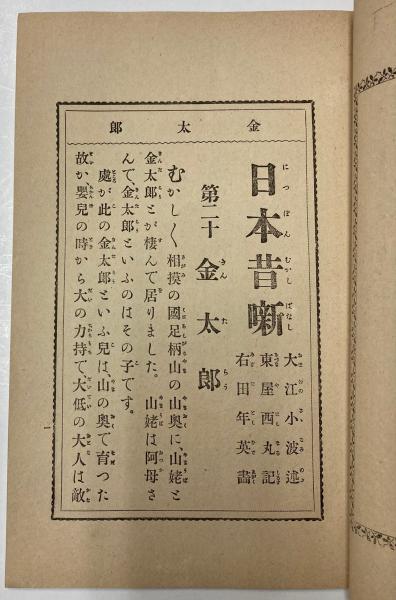 金太郎
日本昔噺
大江小波述
東屋西丸記
右田年英畫
第二十 金太郎
むかし〱相摸の國足柄山の山奥に山姥と
金太郎とが棲んて居りました。山姥は阿母さ
んて、金太郎といふのはその子です。
處が此の金太郎といふ兒は、山の奥て育つた
故か嬰兒の時から大の力持て、大低の大人は敵